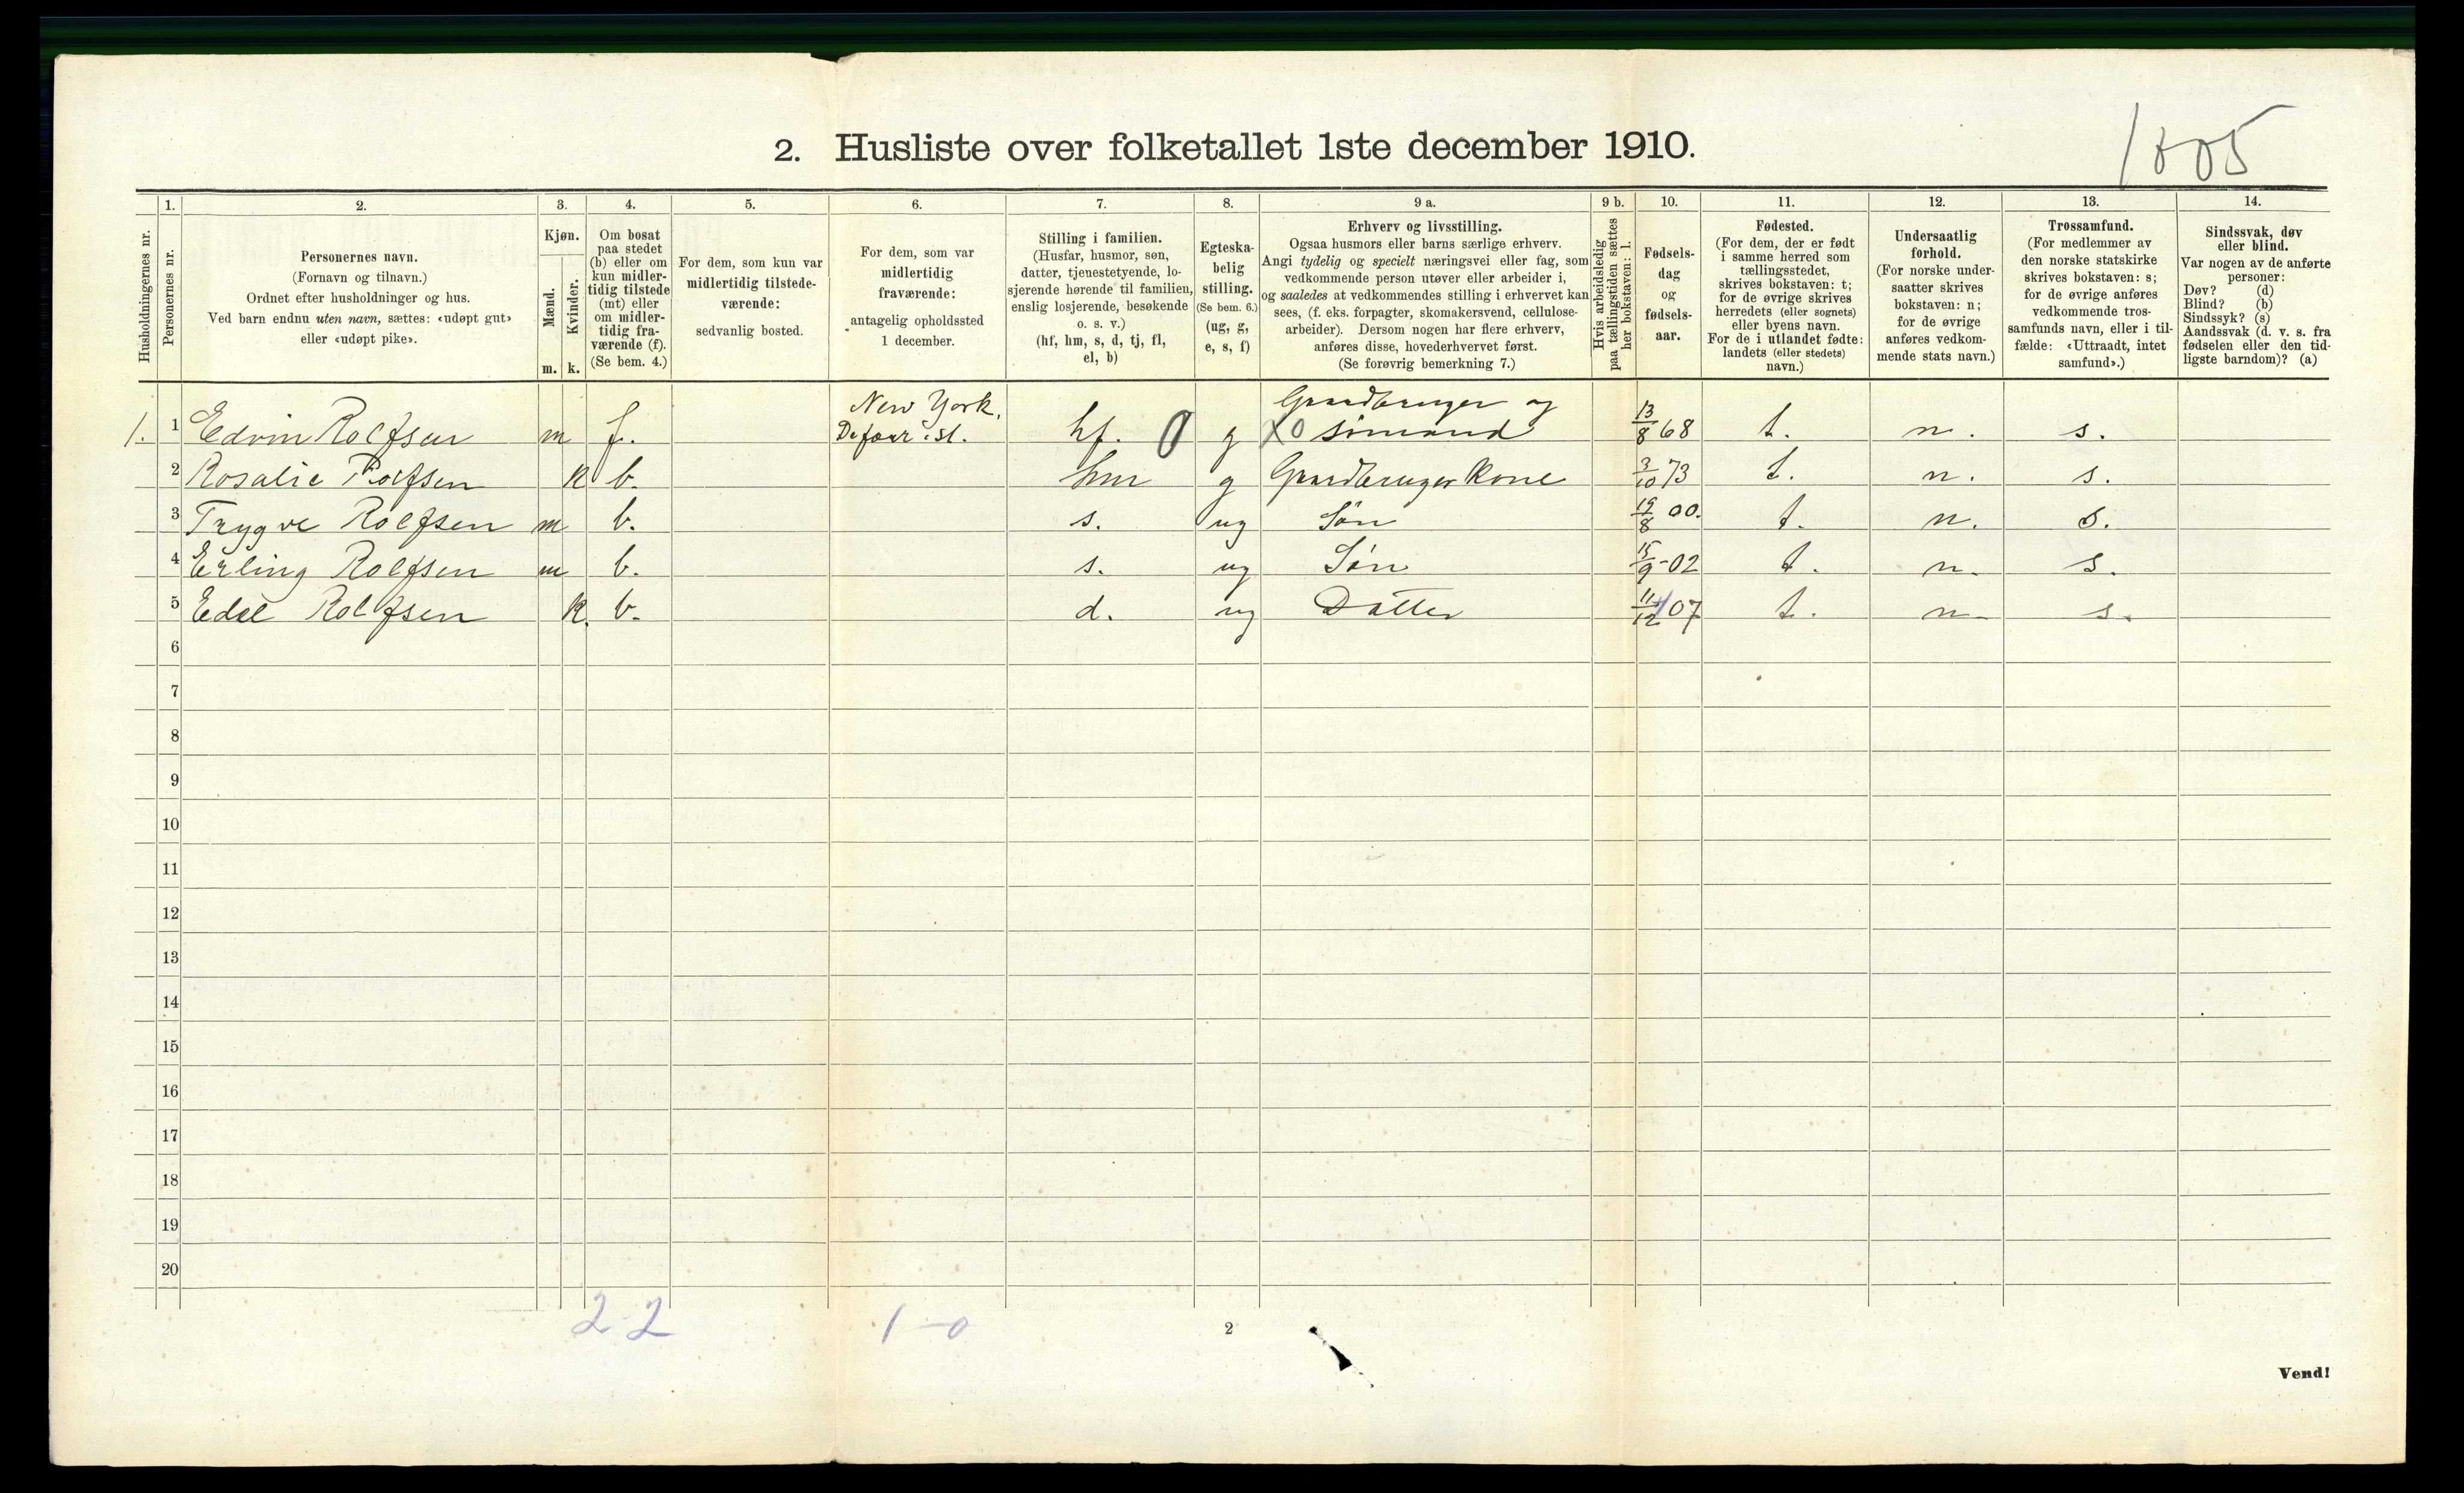 1005
2. Husliste over folketallet 1ste december 1910.
Husholdningernes nr.
1.
Personernes nr.
2.
Personernes navn.
(Fornavn og tilnavn.)
Ordnet efter husholdninger og hus.
Ved barn endnu uten navn, sættes: «udøpt gut»
eller «udøpt pike».
3.
Kjøn.
Mænd.
Kvinder.
m. k.
4.
Om bosat
paa stedet
(b) eller om
kun midler-
tidig tilstede
(mt) eller
om midler-
tidig fra-
værende (f).
(Se bem. 4.)
5.
For dem, som kun var
midlertidig tilstede-
værende:
sedvanlig bosted.
6.
For dem, som var
midlertidig
fraværende:
antagelig opholdssted
1 december.
7.
Stilling i familien.
(Husfar, husmor, søn,
datter, tjenestetyende, lo-
sjerende hørende til familien,
enslig losjerende, besøkende
o. s. v.)
(hf, hm, s, d, tj, fl,
el, b)
8.
Egteska-
belig
stilling.
(Se bem. 6.)
(ug, g,
e, s, f)
9 a.
Erhverv og livsstilling.
Ogsaa husmors eller barns særlige erhverv.
Angi tydelig og specielt næringsvei eller fag, som
vedkommende person utøver eller arbeider i,
og saaledes at vedkommendes stilling i erhvervet kan
sees, (f. eks. forpagter, skomakersvend, cellulose-
arbeider). Dersom nogen har flere erhverv,
anføres disse, hovederhvervet først.
(Se forøvrig bemerkning 7.)
9 b.
Hvis arbeidsledig
paa tællingstiden sættes
her bokstaven: l.
10.
Fødsels-
dag
og
fødsels-
aar.
11.
Fødested.
(For dem, der er født
i samme herred som
tællingsstedet,
skrives bokstaven: t;
for de øvrige skrives
herredets (eller sognets)
eller byens navn.
For de i utlandet fødte:
landets (eller stedets)
navn.)
12.
Undersaatlig
forhold.
(For norske under-
saatter skrives
bokstaven: n;
for de øvrige
anføres vedkom-
mende stats navn.)
13.
Trossamfund.
(For medlemmer av
den norske statskirke
skrives bokstaven: s;
for de øvrige anføres
vedkommende tros-
samfunds navn, eller i til-
fælde: «Uttraadt, intet
samfund».)
14.
Sindssvak, døv
eller blind.
Var nogen av de anførte
personer:
Døv? (d)
Blind? (b)
Sindssyk? (s)
Aandssvak (d. v. s. fra
fødselen eller den tid-
ligste barndom)? (a)
New York, Gaardbruger og
1. 1 Edvin Rolfsen m f. st. hf. 0 g X0 sömand 13/8 68 t. n. s.
2 Rosalie Rolfsen k b. hm g Gaardbruger kone 3/10 73 t. n. s.
3 Trygve Rolfsen m b. s. ug Sön 19/8 00. t. n. s.
4 Erling Rolfsen m b. s. ug Sön 15/9-02 t. n. s.
5 Edel Rolfsen k. b. d. ug Datter 11/12 07 t. n. s.
6
7
8
9
10
11
12
13
14
15
16
17
18
19
20
2 2 1-0
2
Vend!